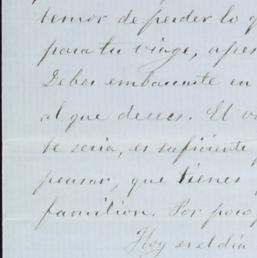 temor de perder lo q
para tu viage, ape
Debes embarcarte en
al que deseas. El v
te seria, es suficiente
pensar, que tienes
familion. Por poco
Hoy es el dia